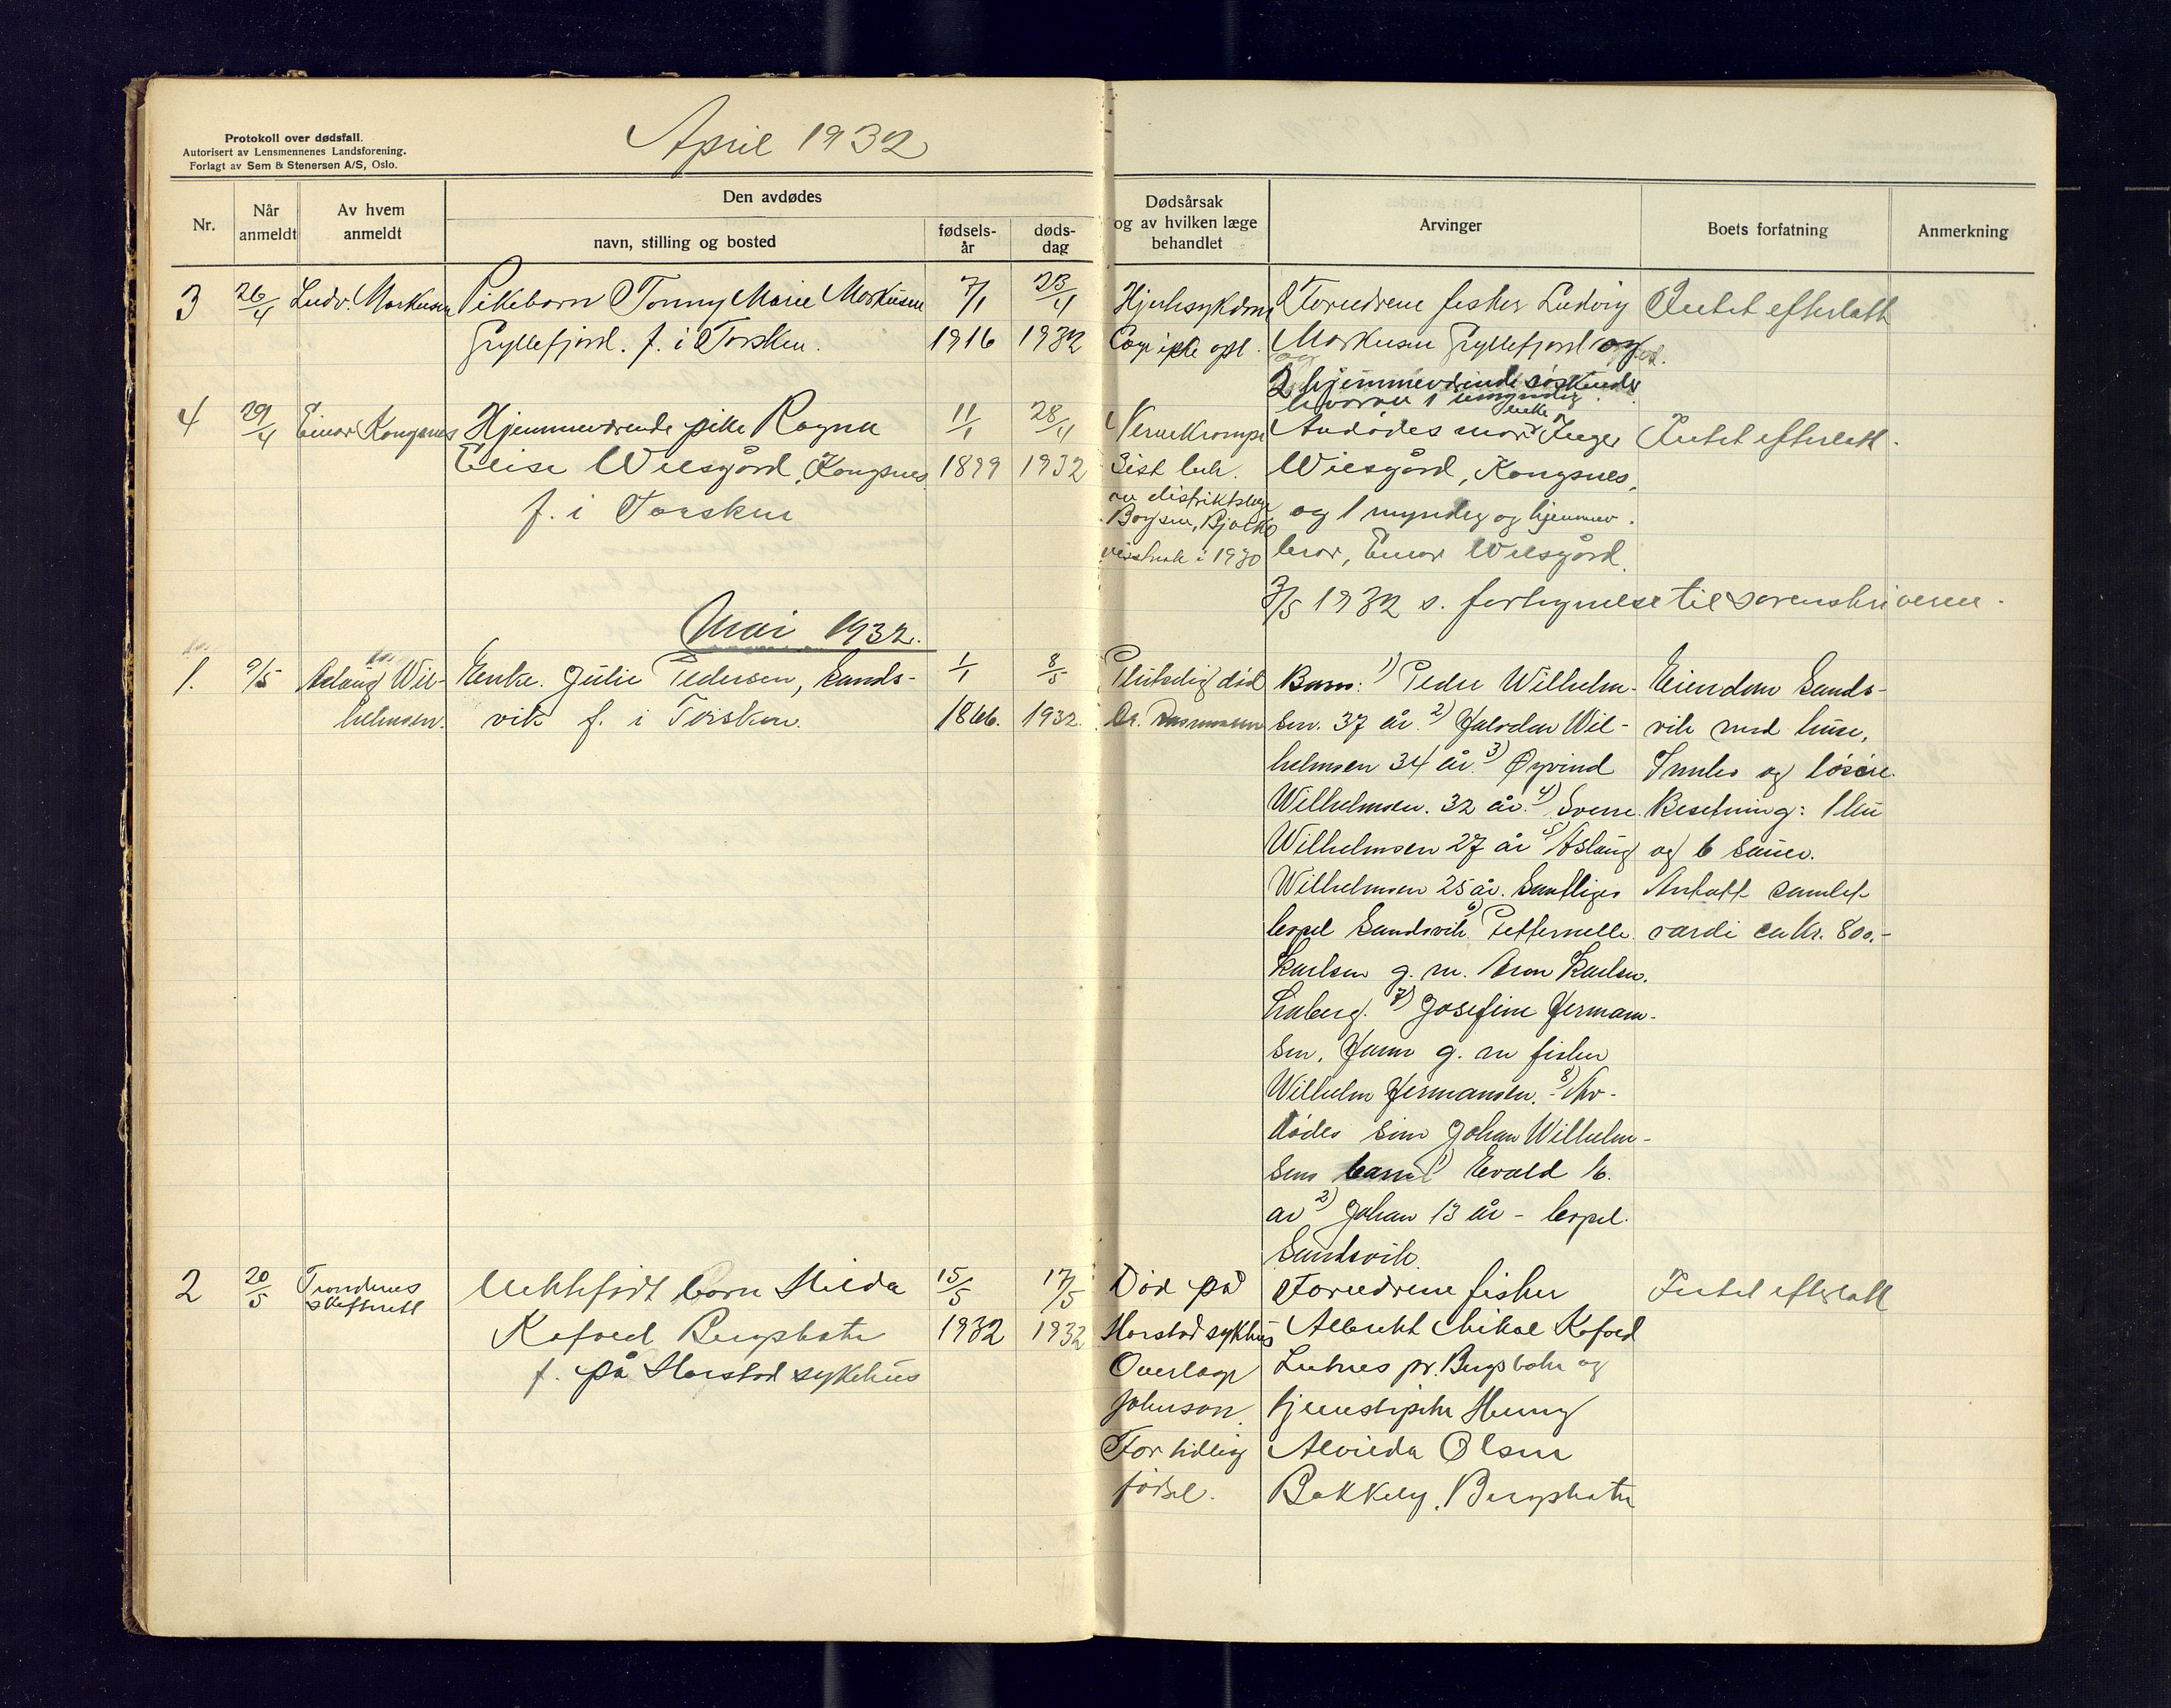 Protokoll over dødsfall.
Autorisert av Lensmennenes Landsforening.
Forlagt av Sem & Stenersen A/S, Oslo.
April 1932
Nr.
Når anmeldt
Av hvem anmeldt
Den avdødes
navn, stilling og bosted
fødsels-år
døds-dag
Dødsårsak og av hvilken læge behandlet
Arvinger
Boets forfatning
Anmerkning
3
26/4
Ludv. Markusen
Pikebarn Tonny Marie Markusen
Gryllefjord. f. i Torsken.
7/1
1916
23/4
1932
Hjertesykdom
Læge ikke opl.
Foreldrene fisker Ludvig
Markusen Gryllefjord og
2 hjemmeværende søskende
hvorav 1 umyndig
Intet efterlatt
4
29/4
Einar Kongsnes
Hjemmeværende pike Ragna
Elise Wilsgård, Kongsnes
f. i Torsken
11/1
1899
28/4
1932
Nervekrampe
Sist beh.
av distriktslæge
Borgen, Bjarkø
i 1930
Avdødes mor enke Inger
Wilsgård, Kongsnes,
og 1 myndig og hjemmev.
bror, Einar Wilsgård.
Intet efterlatt.
3/5 1932 s. fortegnelse til sorenskriveren.
Mai 1932.
1.
9/5
Aslaug Wil-
helmsen.
Enke. Julie Pedersen, Sands-
vik f. i Torsken.
1/1
1866.
8/5
1932.
Plutselig død
Dr. Rasmussen
Barn: 1) Peder Wilhelm-
sen. 37 år. 2) Halvdan Wil-
helmsen 34 år. 3) Øyvind
Wilhelmsen. 32 år. 4) Sverre
Wilhelmsen 27 år 5) Aslaug
Wilhelmsen 25 år. Samtliges
bopel Sandsvik. 6) Petternelle
Karlsen g. m. Aron Karlsen.
7) Josefine Herman-
sen, Hamn g. m. fisker
Wilhelm Hermansen. - 8) Av-
dødes sønn Johan Wilhelm-
sens barn 1) Evald 16.
år 2) Johan 13 år - bopel.
Sandsvik.
Eiendom Sands-
vik med huse,
Innbo og løsøre.
Besetning: 1 ku
og 6 sauer.
Antatt samlet
værdi ca kr. 800.-
2
20/5
Trondenes
skifterett
Uektefødt barn Hilda
Kofoed Bergsbotn
f. på Harstad sykehus
15/5
1932
17/5
1932
Død på
Harstad sykhus
Overlæge
Johnson.
For tidlig
fødsel.
Foreldrene fisker
Albrekt Mikal Kofoed
Lutnes pr. Bergsbotn og
tjenestepike Henny
Alvilda Olsen
Bakkely, Bergsbotn
Intet efterlatt